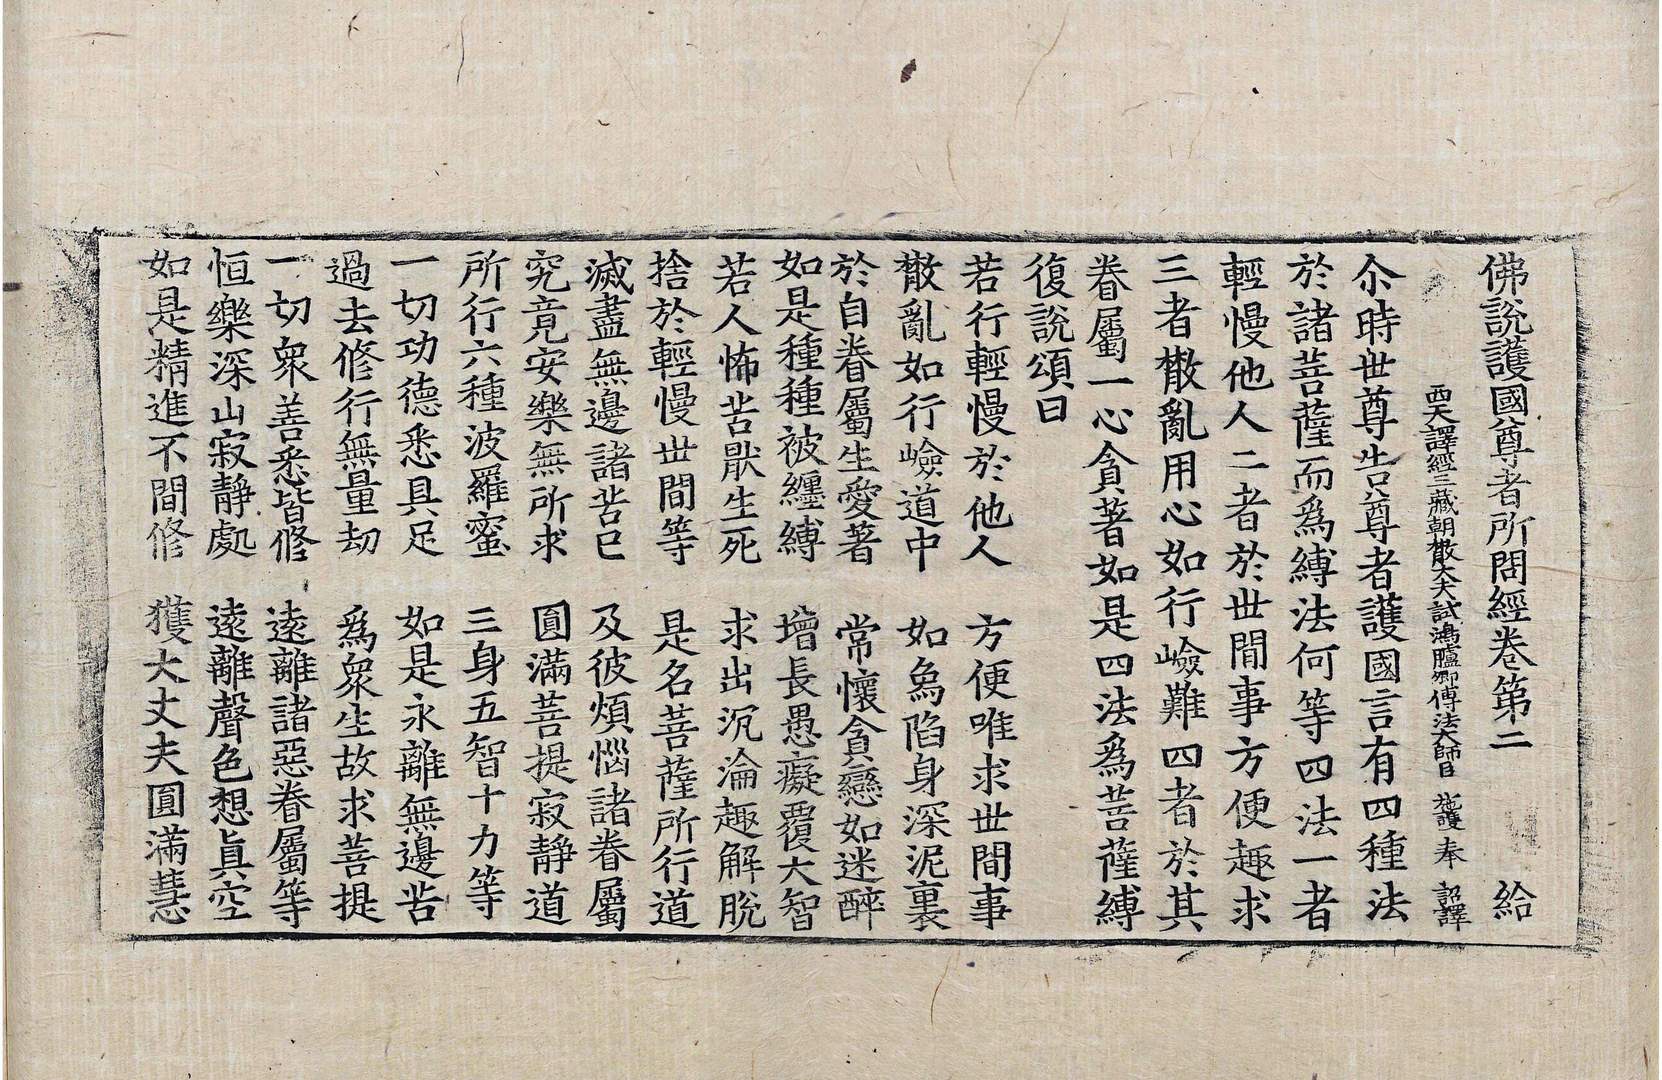 佛說護國尊者所問經卷第二 給
西天譯經三藏朝散大夫試鴻臚卿傳法大師臣 施護 奉 詔譯
尒時世尊告尊者護國言有四種法
於諸菩薩而爲縛法何等四法一者
輕慢他人二者於世間事方便趣求
三者散亂用心如行嶮難四者於其
眷屬一心貪著如是四法爲菩薩縛
復說頌曰
若行輕慢於他人 方便唯求世間事
散亂如行嶮道中 如象陷身深泥裏
於自眷屬生愛著 常懷貪戀如迷醉
如是種種被纏縛 增長愚癡覆大智
若人怖苦猒生死 求出沉淪趣解脫
捨於輕慢世間等 是名菩薩所行道
滅盡無邊諸苦已 及彼煩惱諸眷屬
究竟安樂無所求 圓滿菩提寂靜道
所行六種波羅蜜 三身五智十力等
一切功德悉具足 如是永離無邊苦
過去修行無量劫 爲衆生故求菩提
一切衆善悉皆修 遠離諸惡眷屬等
恒樂深山寂靜處 遠離聲色想眞空
如是精進不間修 獲大丈夫圓滿慧